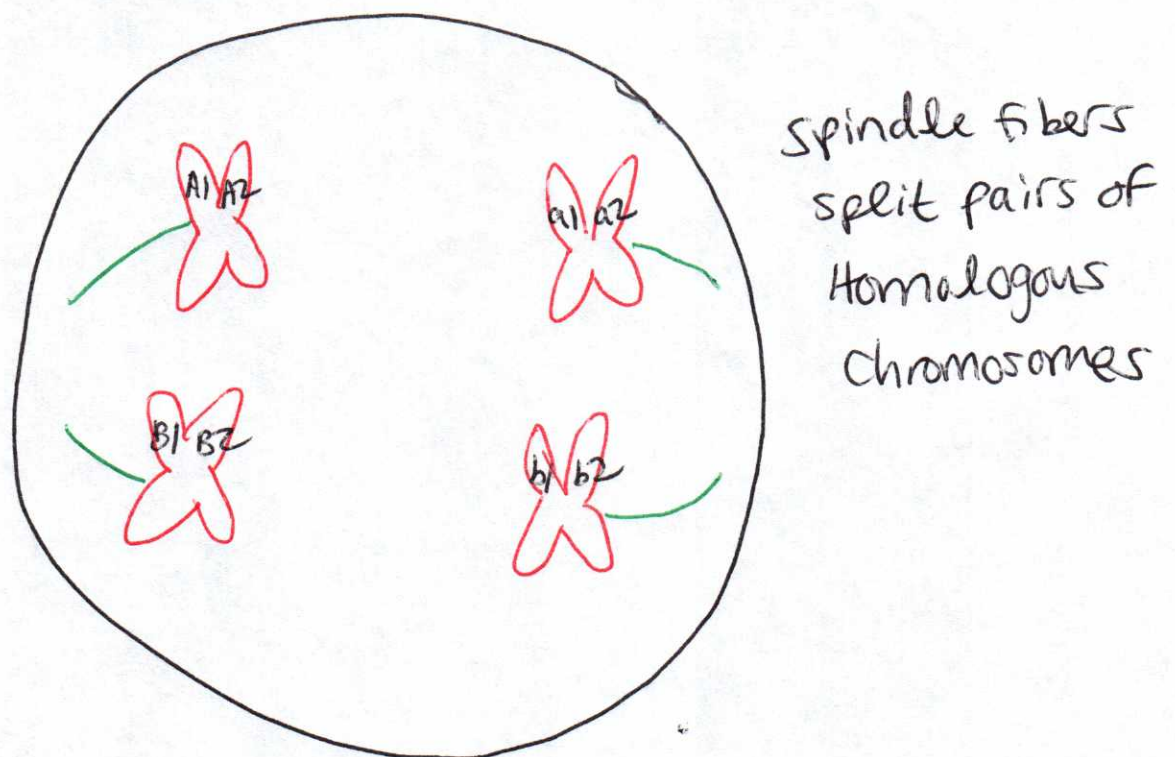 A1 A2
a1 a2
B1 B2
b1 b2
spindle fibers
split pairs of
Homologous
Chromosomes